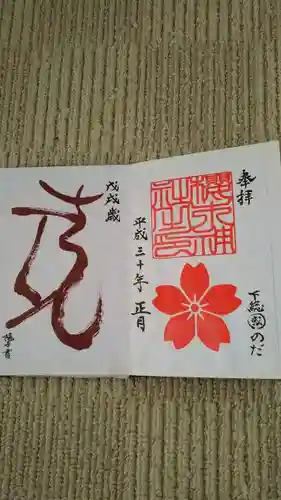 奉拝
櫻木神社之印
下総国のだ
平成三十年 正月
戊戌歳